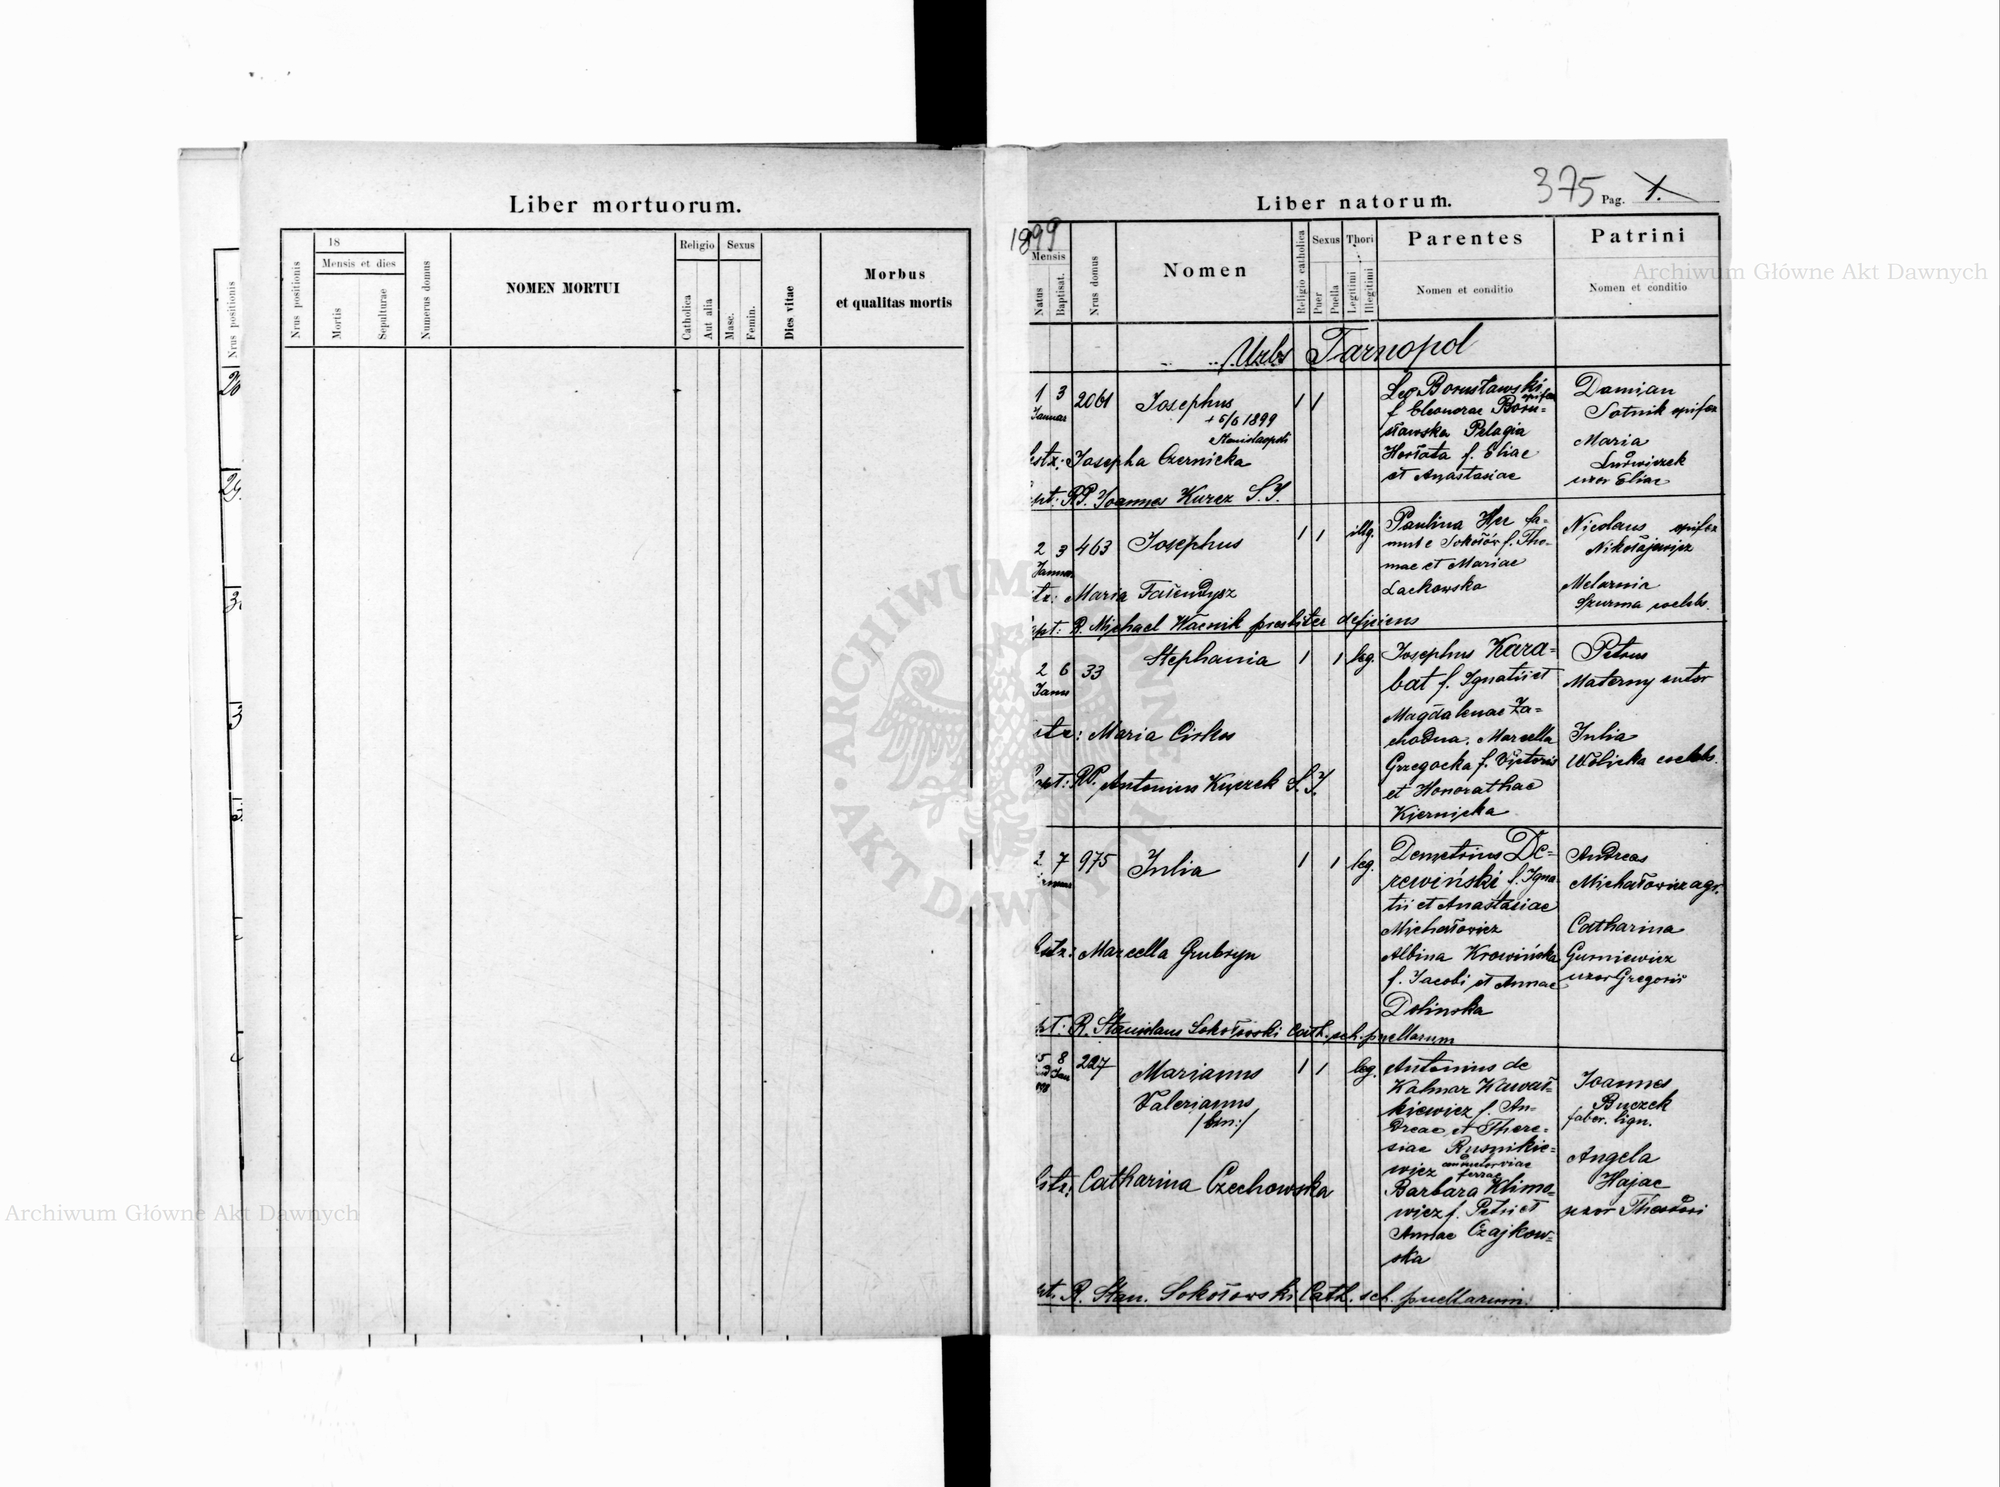 Liber mortuorum.
Nrus positionis
18
Mensis et dies
Mortis
Sepulturae
Numerus domus
NOMEN MORTUI
Religio
Catholica
Aut alia
Sexus
Masc.
Femin.
Dies vitae
Morbus
et qualitas mortis
Nrus positionis
Liber natorum.
375
Pag. 1.
1899
Mensis
Natus
Baptisat.
Nrus domus
Nomen
Religio catholica
Sexus
Puer
Puella
Thori
Legitimi
Illegitimi
Parentes
Nomen et conditio
Patrini
Nomen et conditio
Urbs Tarnopol
1 3 2061 Josephus 1 1
Januar
+ 5/6 1899
Stanislaopoli
Leo Borusławski opifex
f Eleonorae Boru=
sławska Pelagia
f. Eliae
et Anastasiae
Damian
Sotnik opifex
Maria
Ludwiczek
uxor Eliae
Josepha Czernicka
RP. Joannes Kurcz S. J.
2 3 463 Josephus 1 1 illg.
Paulina Her fa-
mul e Sokołów f. Tho-
mae et Mariae
Lackowska
Nicolaus opifex
Nikołajewicz
Melania
Szurma coelebs.
Maria Fałendysz
R. Michael Wacnik presbiter deficiens
2 6 33 Stephania 1 1 leg.
Janu
Josephus Kara=
bat f. Ignatii et
Magdalenae Za=
chodna. Marcella
Grzegocka f. Victoris
et Honorathae
Kiernicka
Petrus
Materny sutor
Julia
Wolicka coelebs.
Maria Cirkos
RP. Antonius Kuczek S. J.
2 7 975 Julia 1 1 leg.
Demetrius De=
rewiński f. Igna
tii et Anastasiae
Michałowicz
Albina Krowińska
f. Jacobi et Annae
Dolinska
Andreas
Michałowicz agr.
Catharina
Gurniewicz
uxor Gregorii
Marcella Grubryn
R. Stanislaus Sokołowski Cath. sch. puellarum
5 8 227 Marianus 1 1 leg.
Valerianus
/bin:/
Antonius de
Kalmar Kawał=
kiewicz f. An-
dreae et There=
siae Rusnikie=
wicz conductor viae
ferrae
Barbara Klimo=
wicz f. Petri et
Annae Czajkow=
ska
Joannes
Buczek
faber. lign.
Angela
Hajac
uxor Theodori
Catharina Czechowska
R. Stan. Sokołowski Cath. sch. puellarum.
Archiwum Główne Akt Dawnych
Archiwum Główne Akt Dawnych
ARCHIWUM GŁÓWNE AKT DAWNYCH